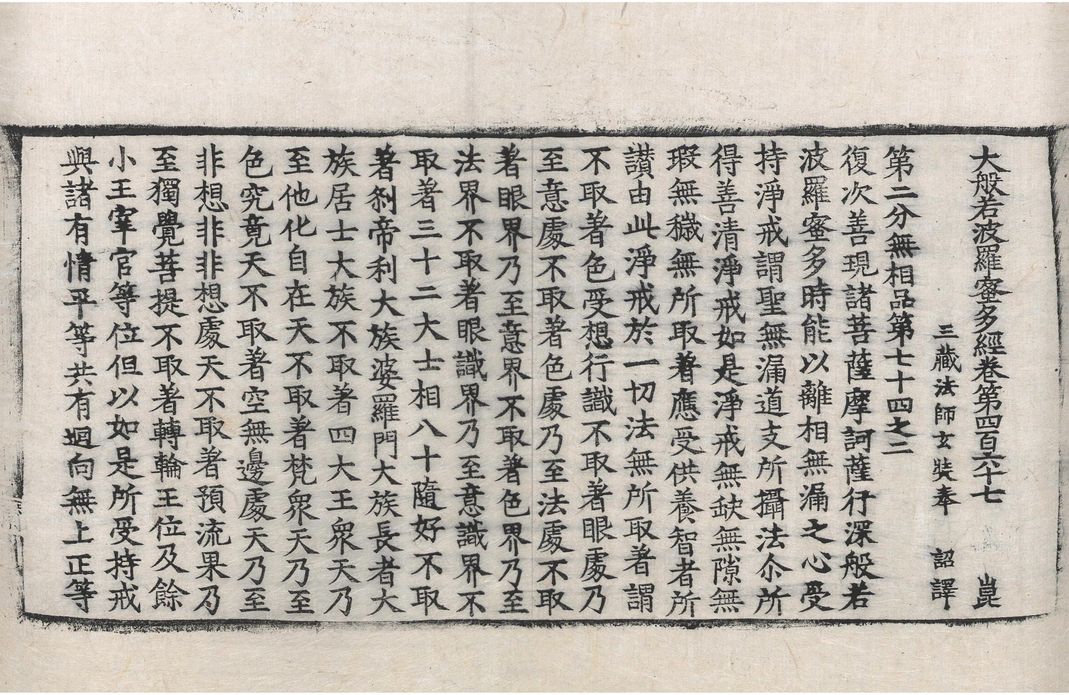 大般若波羅蜜多經卷第四百六十七　崑
三藏法師玄奘奉　詔譯
第二分無相品第七十四之二
復次善現諸菩薩摩訶薩行深般若
波羅蜜多時能以離相無漏之心受
持淨戒謂聖無漏道支所攝法尒所
得善清淨戒如是淨戒無缺無隙無
瑕無穢無所取著應受供養智者所
讃由此淨戒於一切法無所取著謂
不取著色受想行識不取著眼處乃
至意處不取著色處乃至法處不取
著眼界乃至意界不取著色界乃至
法界不取著眼識界乃至意識界不
取著三十二大士相八十隨好不取
著剎帝利大族婆羅門大族長者大
族居士大族不取著四大王衆天乃
至他化自在天不取著梵衆天乃至
色究竟天不取著空無邊處天乃至
非想非非想處天不取著預流果乃
至獨覺菩提不取著轉輪王位及餘
小王宰官等位但以如是所受持戒
與諸有情平等共有迴向無上正等